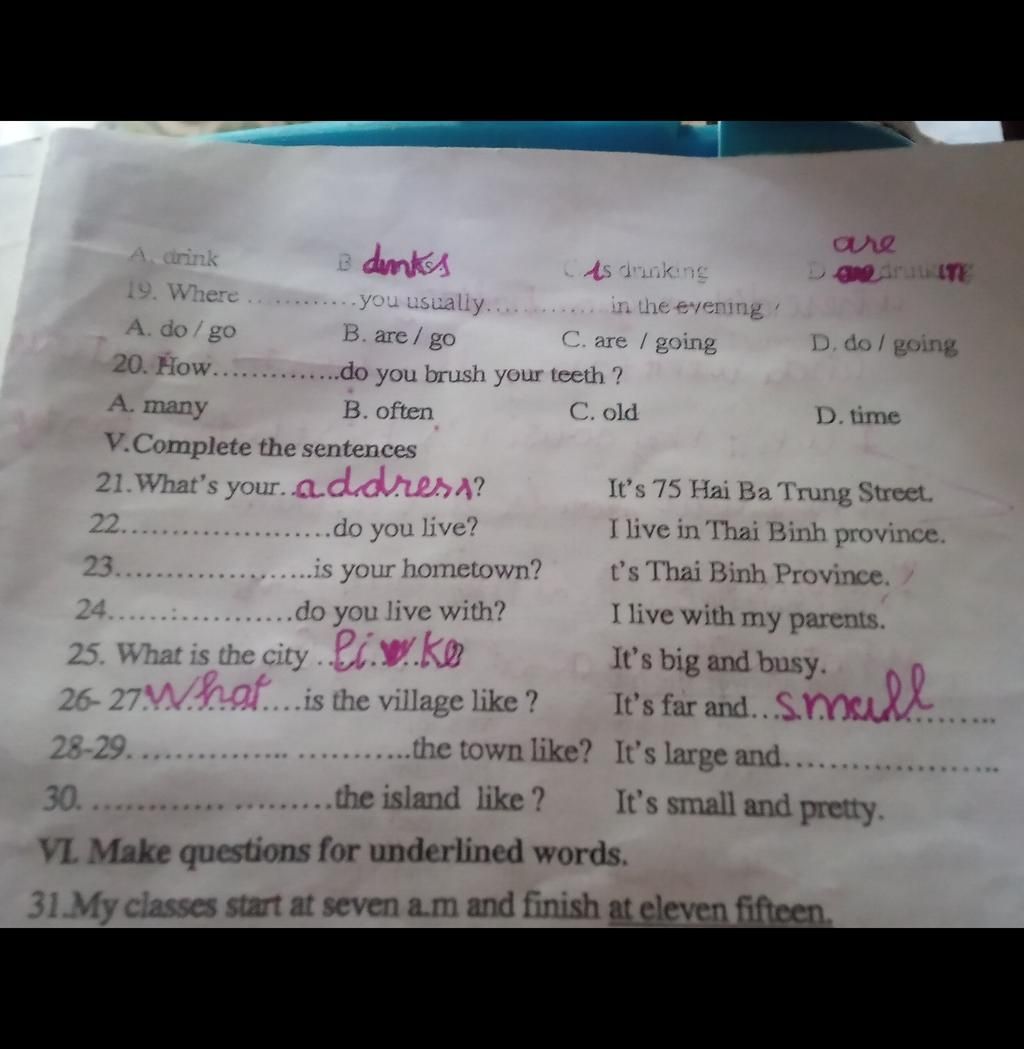 A. drink B drinks C is drinking D are
19. Where ............you usually............. in the evening
A. do / go B. are / go C. are / going D. do / going
20. How..............do you brush your teeth ?
A. many B. often C. old D. time
V.Complete the sentences
21.What's your..address? It's 75 Hai Ba Trung Street.
22.....................do you live? I live in Thai Binh province.
23....................is your hometown? t's Thai Binh Province.
24......:..............do you live with? I live with my parents.
25. What is the city ..like? It's big and busy.
26- 27.What....is the village like ? It's far and...small.........
28-29. .............. ...........the town like? It's large and.....................
30. ............. .........the island like ? It's small and pretty.
VI. Make questions for underlined words.
31.My classes start at seven a.m and finish at eleven fifteen.